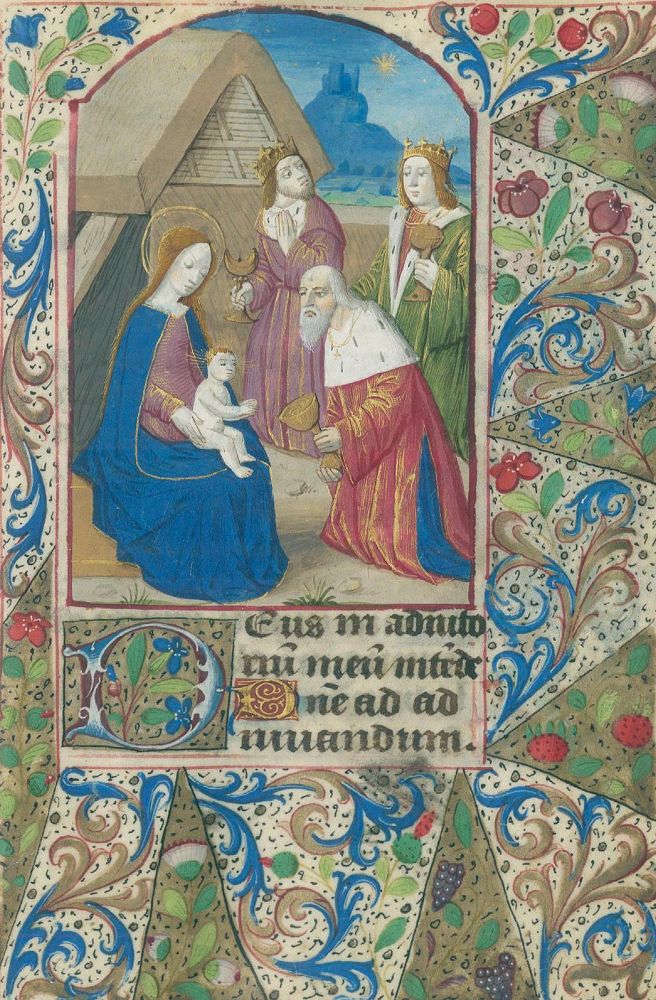 Deus in adiuto
riũ meũ intẽde
Dñe ad ad
iuuandum.